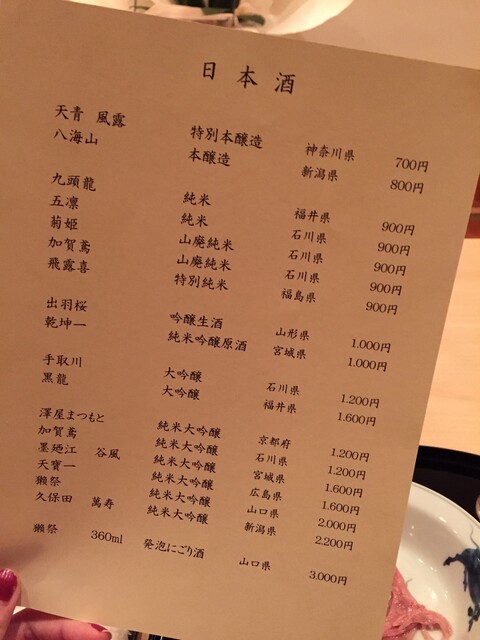 日本酒
天青 風露 特別本醸造 神奈川県 700円
八海山 本醸造 新潟県 800円
九頭龍 純米 福井県 900円
五凛 純米 石川県 900円
菊姫 山廃純米 石川県 900円
加賀鳶 山廃純米 石川県 900円
飛露喜 特別純米 福島県 900円
出羽桜 吟醸生酒 山形県 1.000円
乾坤一 純米吟醸原酒 宮城県 1.000円
手取川 大吟醸 石川県 1.200円
黒龍 大吟醸 福井県 1.600円
澤屋まつもと 純米大吟醸 京都府 1.200円
加賀鳶 純米大吟醸 石川県 1.200円
墨廼江 谷風 純米大吟醸 宮城県 1.600円
天寶一 純米大吟醸 広島県 1.600円
獺祭 純米大吟醸 山口県 2.000円
久保田 萬寿 純米大吟醸 新潟県 2.200円
獺祭 360ml 発泡にごり酒 山口県 3.000円